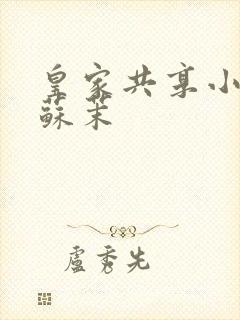 皇家共享小
蘇茉
盧秀先